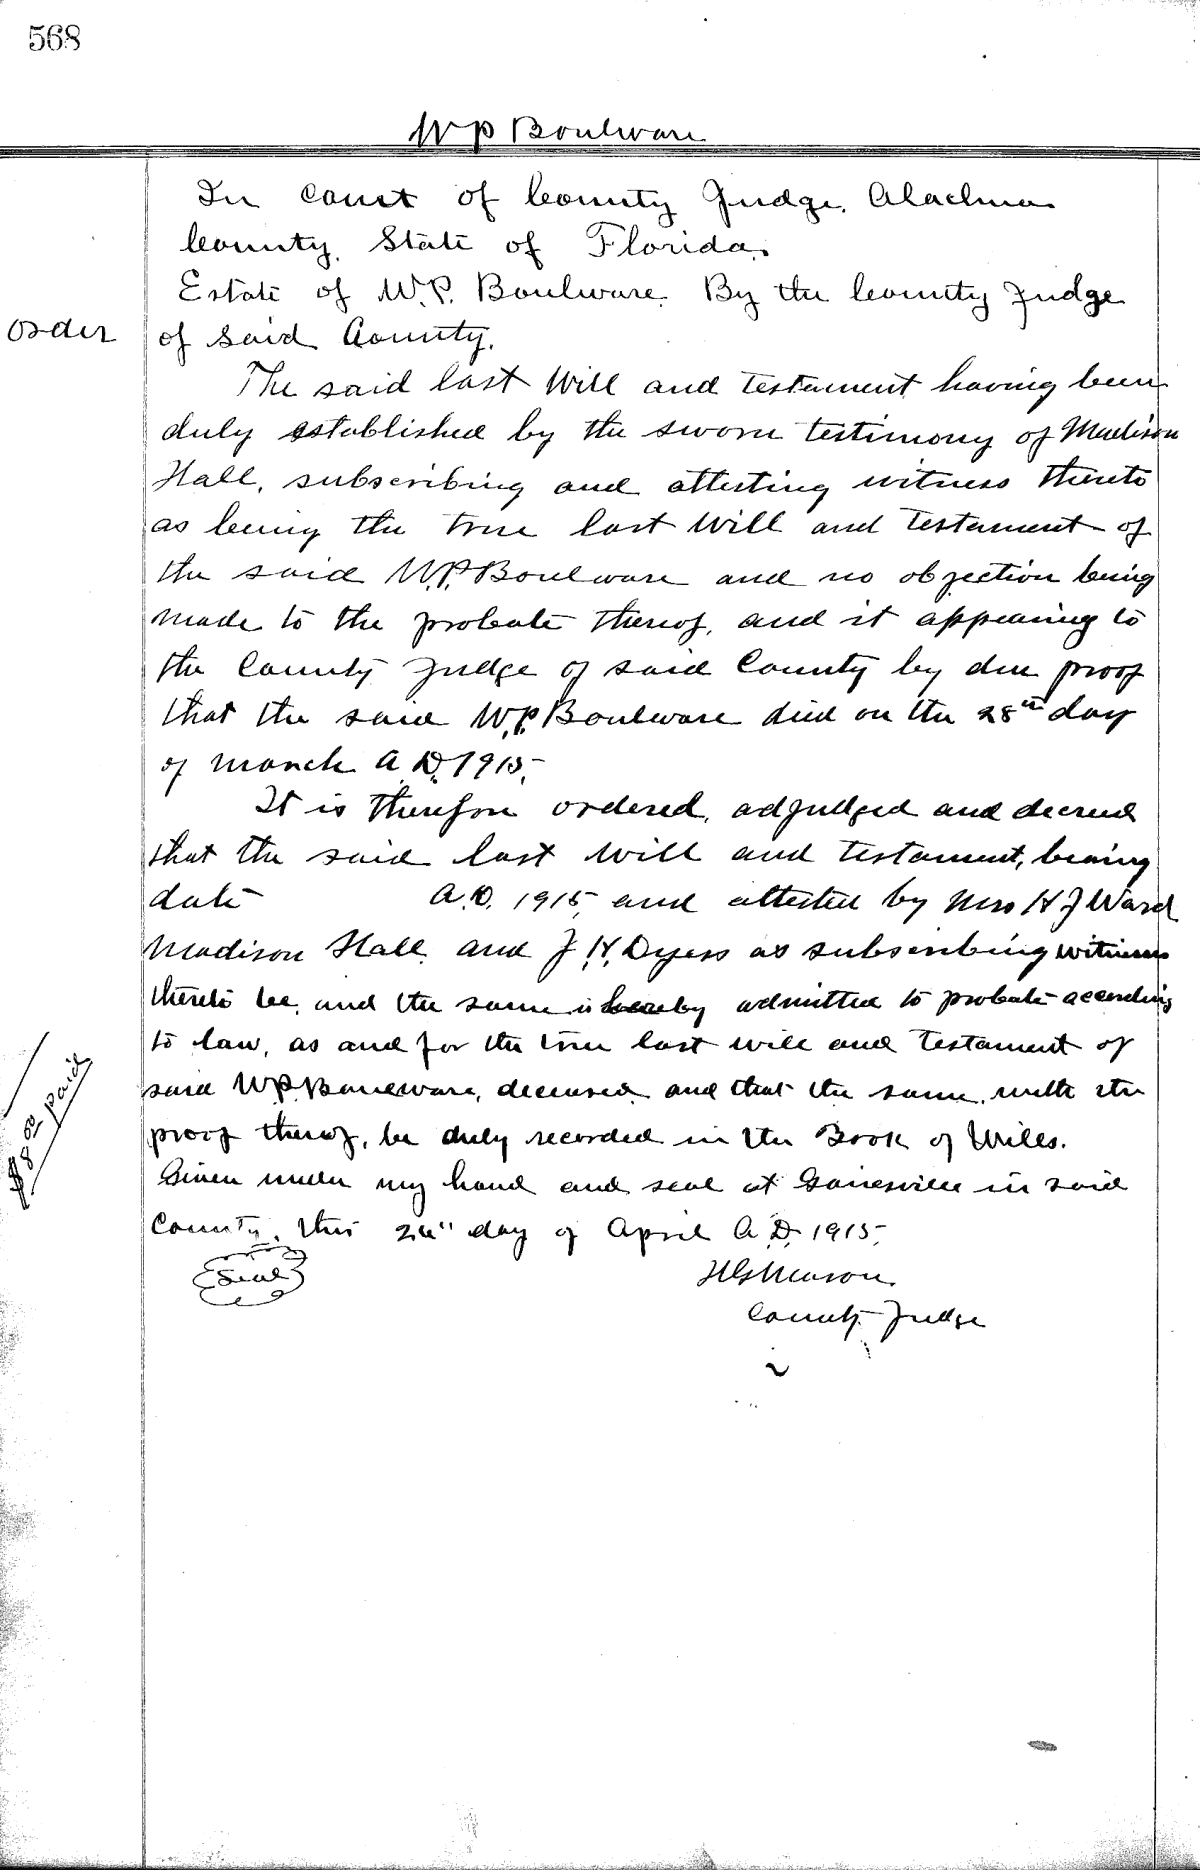 568
W P Boulware
In Court of County Judge, Alachua
County, State of Florida.
Estate of W.P. Boulware. By the County Judge
Order
of said County.
The said last Will and testament having been
duly established by the sworn testimony of Madison
Hall, subscribing and attesting witness thereto
as being the true last Will and Testament of
the said W.P. Boulware and no objection being
made to the probate thereof, and it appearing to
the County Judge of said County by due proof
that the said W.P. Boulware died on the 28th day
of March A.D. 1915.
It is therefore ordered, adjudged and decreed
that the said last Will and testament, bearing
date A.D. 1915, and attested by Mrs H J Ward
Madison Hall and J.H. Dyess as subscribing witness
thereto be, and the same is hereby admitted to probate according
to law, as and for the true last will and Testament of
said W.P. Boulware, deceased and that the same, with the
proof thereof, be duly recorded in the Book of Wills.
paid
Given under my hand and seal at Gainesville in said
County, this day of April A.D. 1915.
Seal
H G Mason
County Judge